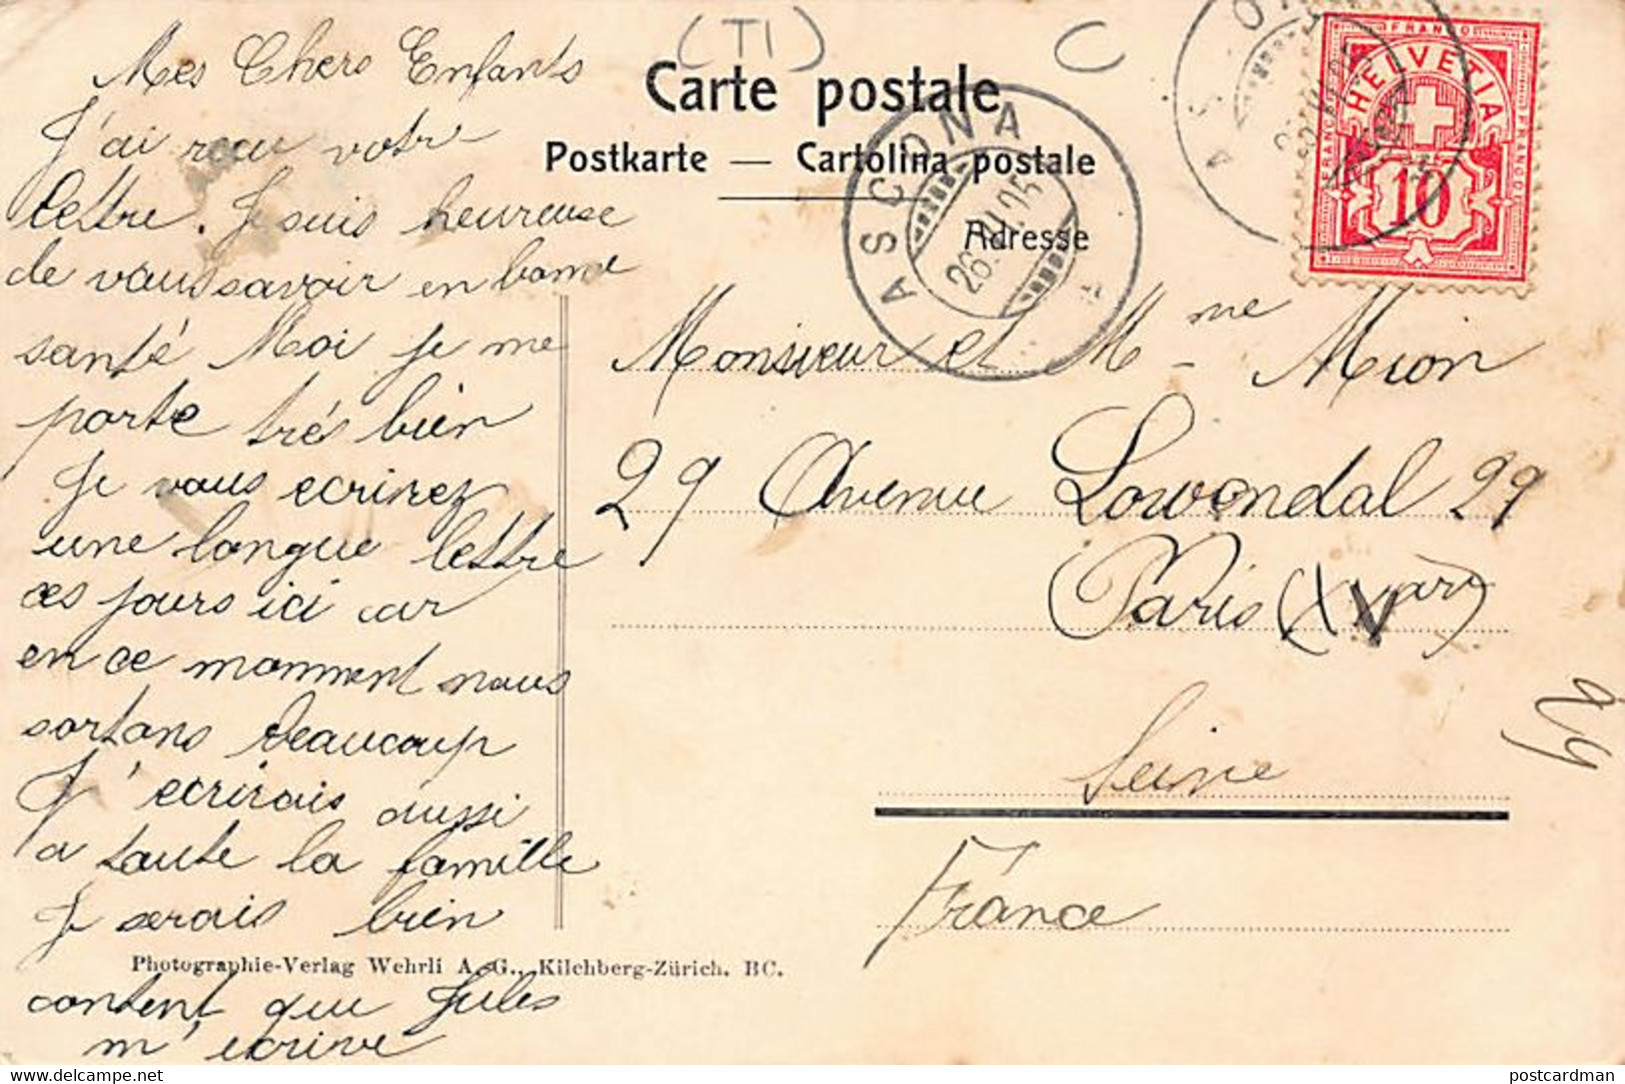 (TI)
C
Carte postale
Postkarte — Cartolina postale
Adresse
ASCONA
FRANCO
HELVETIA
FRANCO
FRANCO
10
Mes Chers Enfants
J'ai recu votre
lettre. Je suis heureuse
de vous savoir en bonne
santé Moi je me
porte trés bien
Je vous ecrirez
une longue lettre
ces jours ici car
en ce moment nous
sortons beaucoup
J'ecrirais aussi
a toute la famille
Je serais bien
content que Jules
m'ecrive
Monsieur et Mme Mion
29 Avenue Lowendal 29
Paris (XV arr)
Seine
France
29
Photographie-Verlag Wehrli A. G., Kilchberg-Zürich. BC.
delcampe.net
postcardman